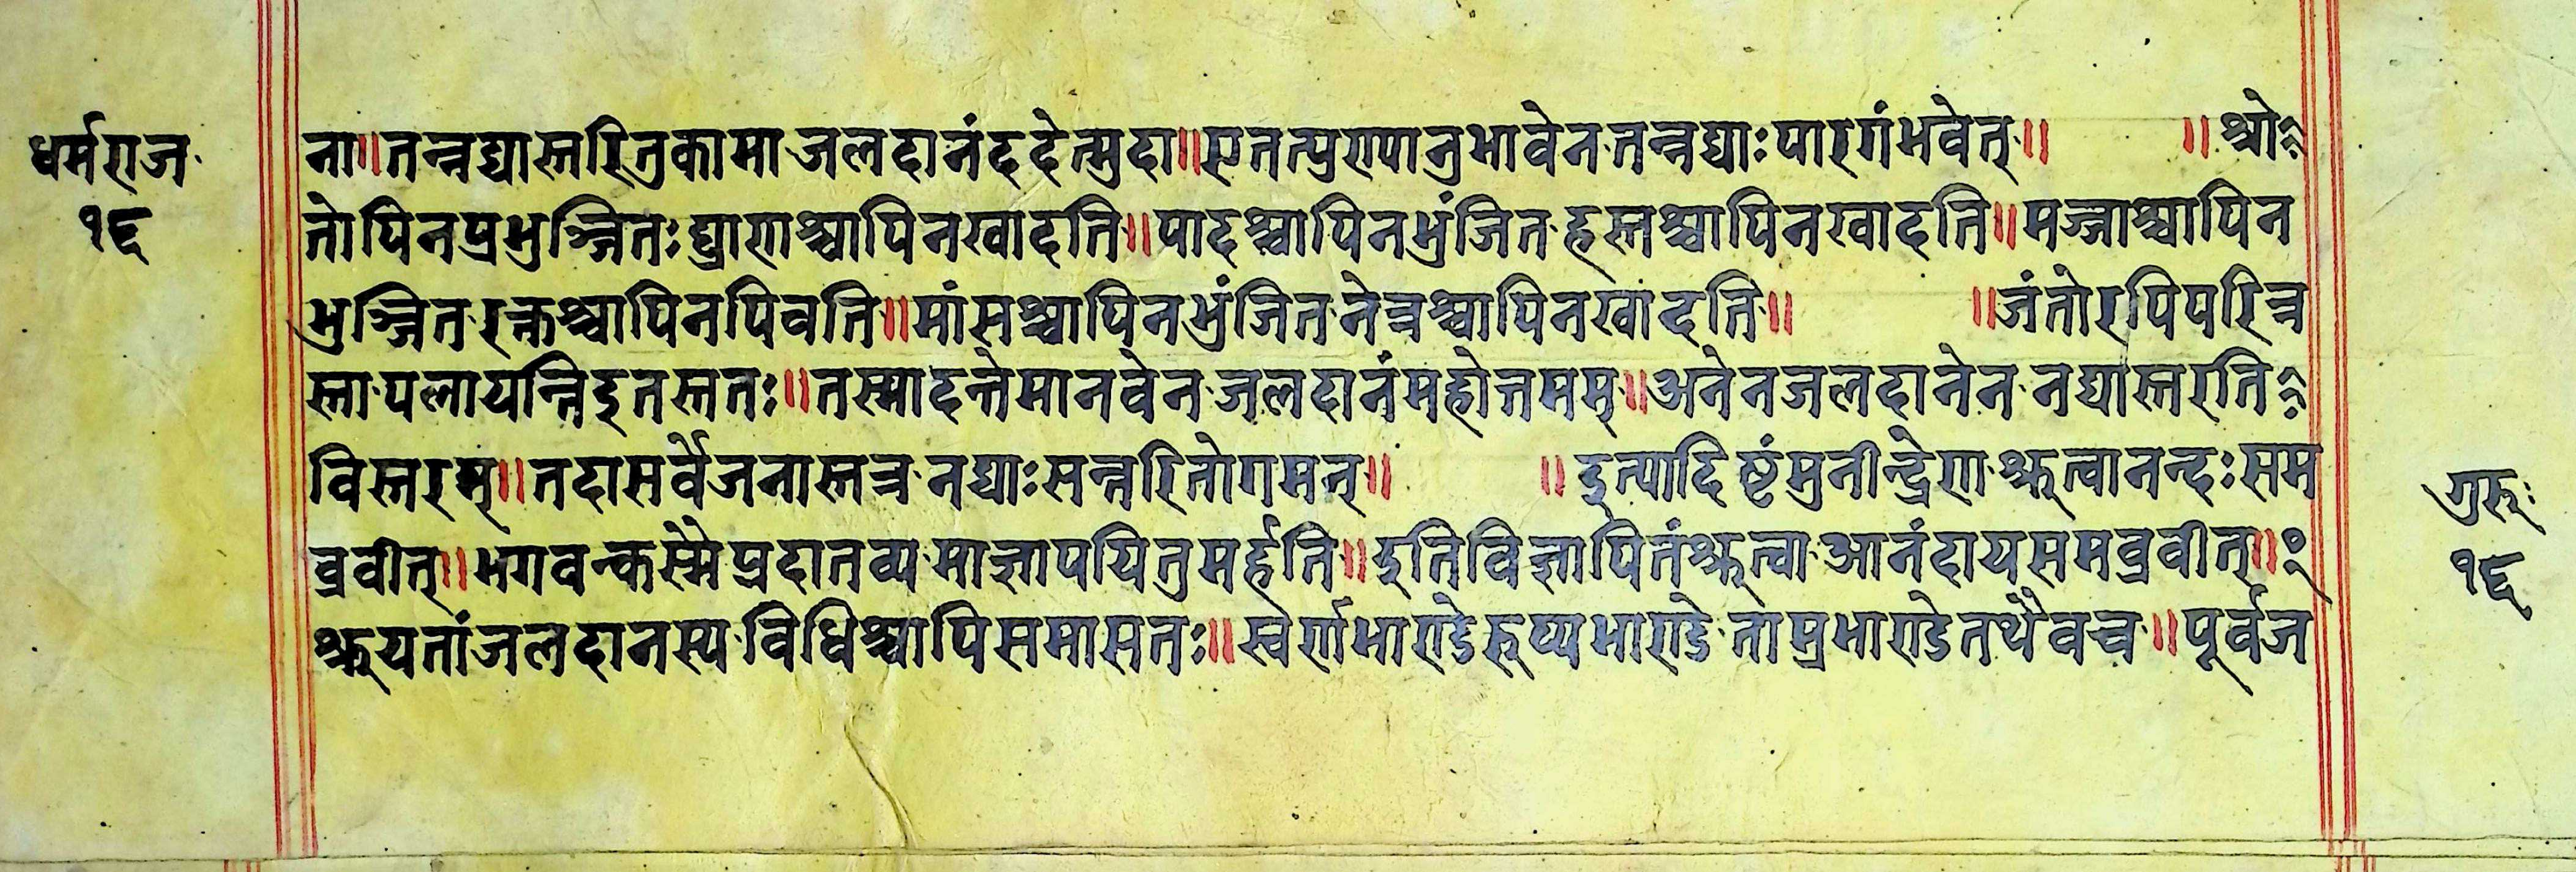 धर्मराज
१६
ना॥तन्नद्यास्तरितुकामा जलदानंददेत्मुदा॥एतत्पुरापानुभावेन तन्नद्याः पारगंभवेत्॥ ॥श्रो
तोपिनप्रभुञ्जितः घ्राराश्चापिनखादति॥पादश्चापिनभुंजित हस्तश्चापिनखादति॥मज्जाश्चापिन
भुञ्जित रक्तश्चापिनपिवति॥मांसश्चापिनभुंजित नेत्रश्चापिनखादति॥ ॥जंतोरपिपरित्र
स्ता पलायन्तिइतस्ततः॥तस्मादन्तेमानवेन जलदानंमहोत्तमम्॥अनेनजलदानेन नद्यास्तरति
विस्तरम्॥तदासर्वेजनास्तत्र नद्याःसन्तरितोगमन्॥ ॥इत्यादिष्टंमुनीन्द्रेरा श्रुत्वानन्दःसम
ब्रवीत्॥भगवन्कस्मैप्रदातव्य माज्ञापयितुमर्हति॥इतिविज्ञापितंश्रुत्वा आनंदायसमब्रवीत्॥
श्रुयतांजलदानस्य विधिश्चापिसमासतः॥स्वर्राभाराडेरूप्यभाराडे ताम्रभाराडेतथैवच॥पूर्वज
गुरूः
१६